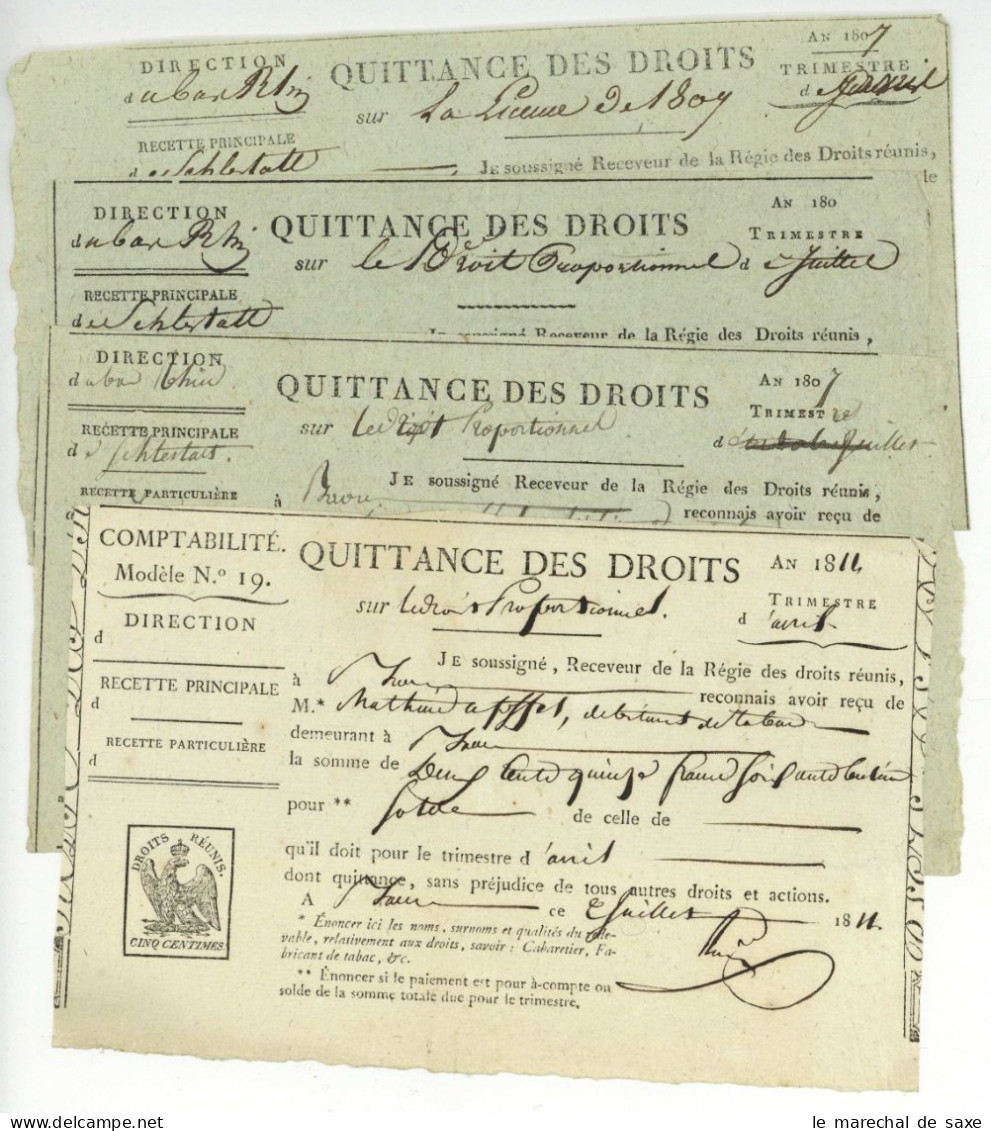 DIRECTION
du bas Rhin
QUITTANCE DES DROITS
AN 1807
TRIMESTRE
sur La Licence de 1807
RECETTE PRINCIPALE
de Schlestatt
JE soussigné Receveur de la Régie des Droits réunis,
le
DIRECTION
du bas Rhin
QUITTANCE DES DROITS
AN 180
TRIMESTRE
sur le Droit Proportionnel de Juillet
RECETTE PRINCIPALE
de Schlestatt
Je soussigné Receveur de la Régie des Droits réunis,
DIRECTION
du bas Rhin
QUITTANCE DES DROITS
AN 1807
TRIMESTRE
sur le droit Proportionnel
d Juillet
RECETTE PRINCIPALE
de Schlestatt.
JE soussigné Receveur de la Régie des Droits réunis,
RECETTE PARTICULIÈRE
à
reconnais avoir reçu de
COMPTABILITÉ.
Modèle N.º 19.
QUITTANCE DES DROITS
AN 1811
TRIMESTRE
d'avril
sur le droit Proportionnel.
DIRECTION
d
JE soussigné, Receveur de la Régie des droits réunis,
à reconnais avoir reçu de
RECETTE PRINCIPALE
d
M.* Mathieu Apffel, debitant de tabac
demeurant à
RECETTE PARTICULIÈRE
d
la somme de Deux Cents quinze francs soixante Centimes
pour ** Solde de celle de
DROITS RÉUNIS.
CINQ CENTIMES
qu'il doit pour le trimestre d'avril
dont quittance, sans préjudice de tous autres droits et actions.
A ce 2 Juillet 1811
* Énoncer ici les noms, surnoms et qualités du rede-
vable, relativement aux droits, savoir : Cabaretier, Fa-
bricant de tabac, &c.
** Énoncer si le paiement est pour à-compte ou
solde de la somme totale due pour le trimestre.
le marechal de saxe